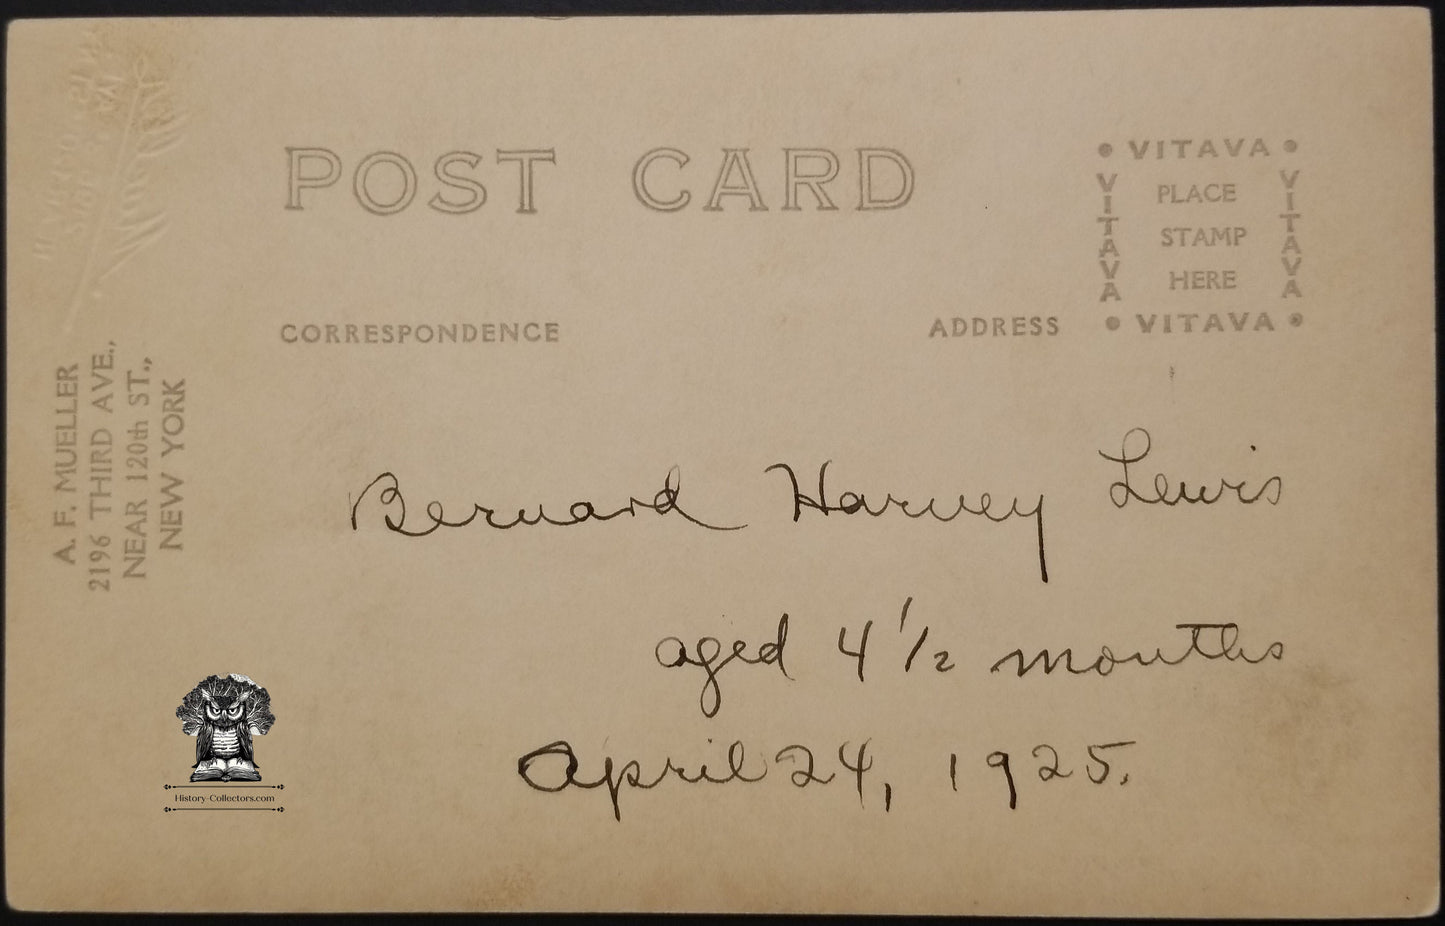 POST CARD
CORRESPONDENCE
ADDRESS
• VITAVA •
VITAVA
PLACE
STAMP
HERE
VITAVA
• VITAVA •
A. F. MUELLER
2196 THIRD AVE.,
NEAR 120th ST.,
NEW YORK
Bernard Harvey Lewis
aged 4 1/2 months
April 24, 1925.
History-Collectors.com